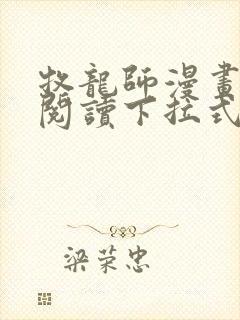 牧龍師漫畫
閱讀下拉式
梁荣忠